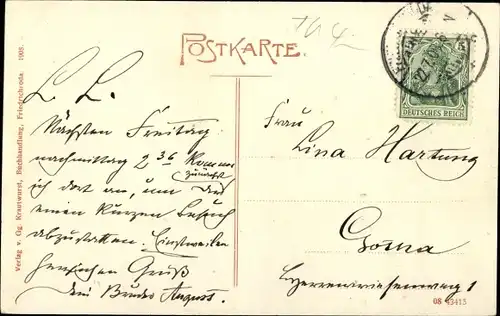 POSTKARTE.
DEUTSCHES REICH
L. L.
Nächsten Freitag
nachmittag 2 36 komme
zunächst
ich dort an, um Dir
einen kurzen Besuch
abzustatten. Einstweilen
herzlichen Gruß
dein Bruder August.
Frau
Lina Hartung
Gotha
Herrenwiesenweg 1
Verlag v. Gg. Krautwurst, Buchhandlung, Friedrichroda. 1908.
08 43415